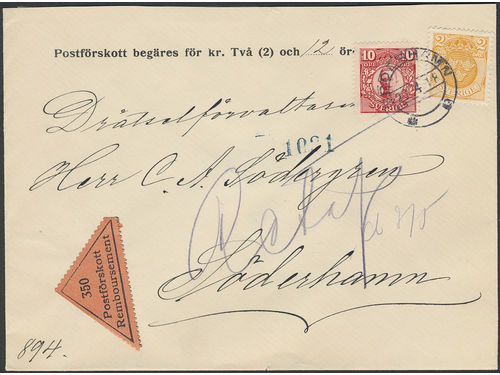 Postförskott begäres för kr. Två (2) och 12 öre
10
SVERIGE
2 2
SVERIGE
Drätselförvaltaren
1031
Herr C. A. Södergren
Retur
Söderhamn
350
Postförskott
Remboursement
894.